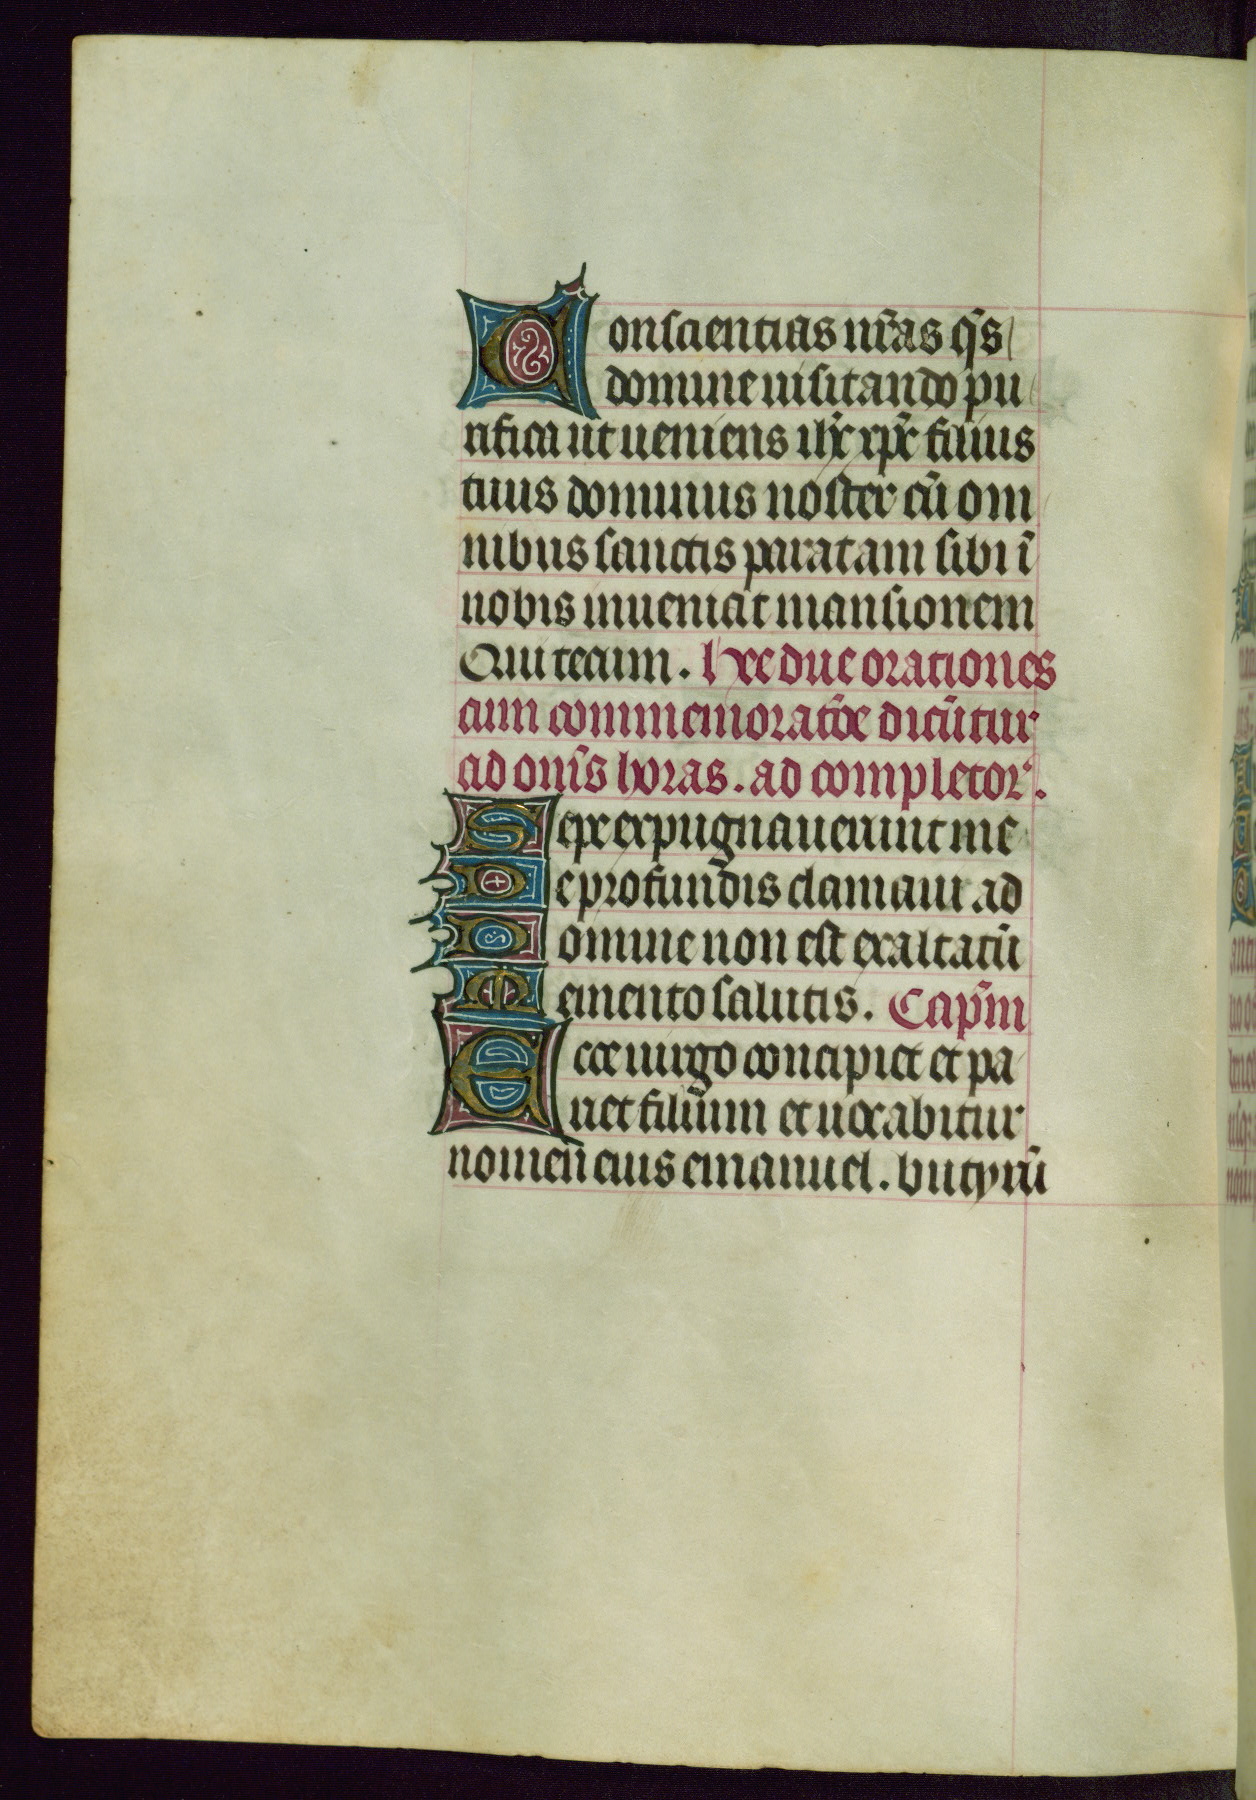 Consciencias nr̄as q̄s
domine uisitando pu
rifica ut ueniens ihc̄ xpc̄ filius
tuus dominus noster cū om
nibus sanctis paratam sibi ī
nobis inueniat mansionem
Qui tecum. Hee due orationes
cum commemoratōe dicūtur
ad oms̄ horas. ad completor᷑.
Sepe expugnauerunt me
De profundis clamaui ad
Domine non est exaltatū
Memento salutis. Cap̄m
Ecce uirgo concipiet et pa
riet filium et uocabitur
nomen eius emanuel. butyrū